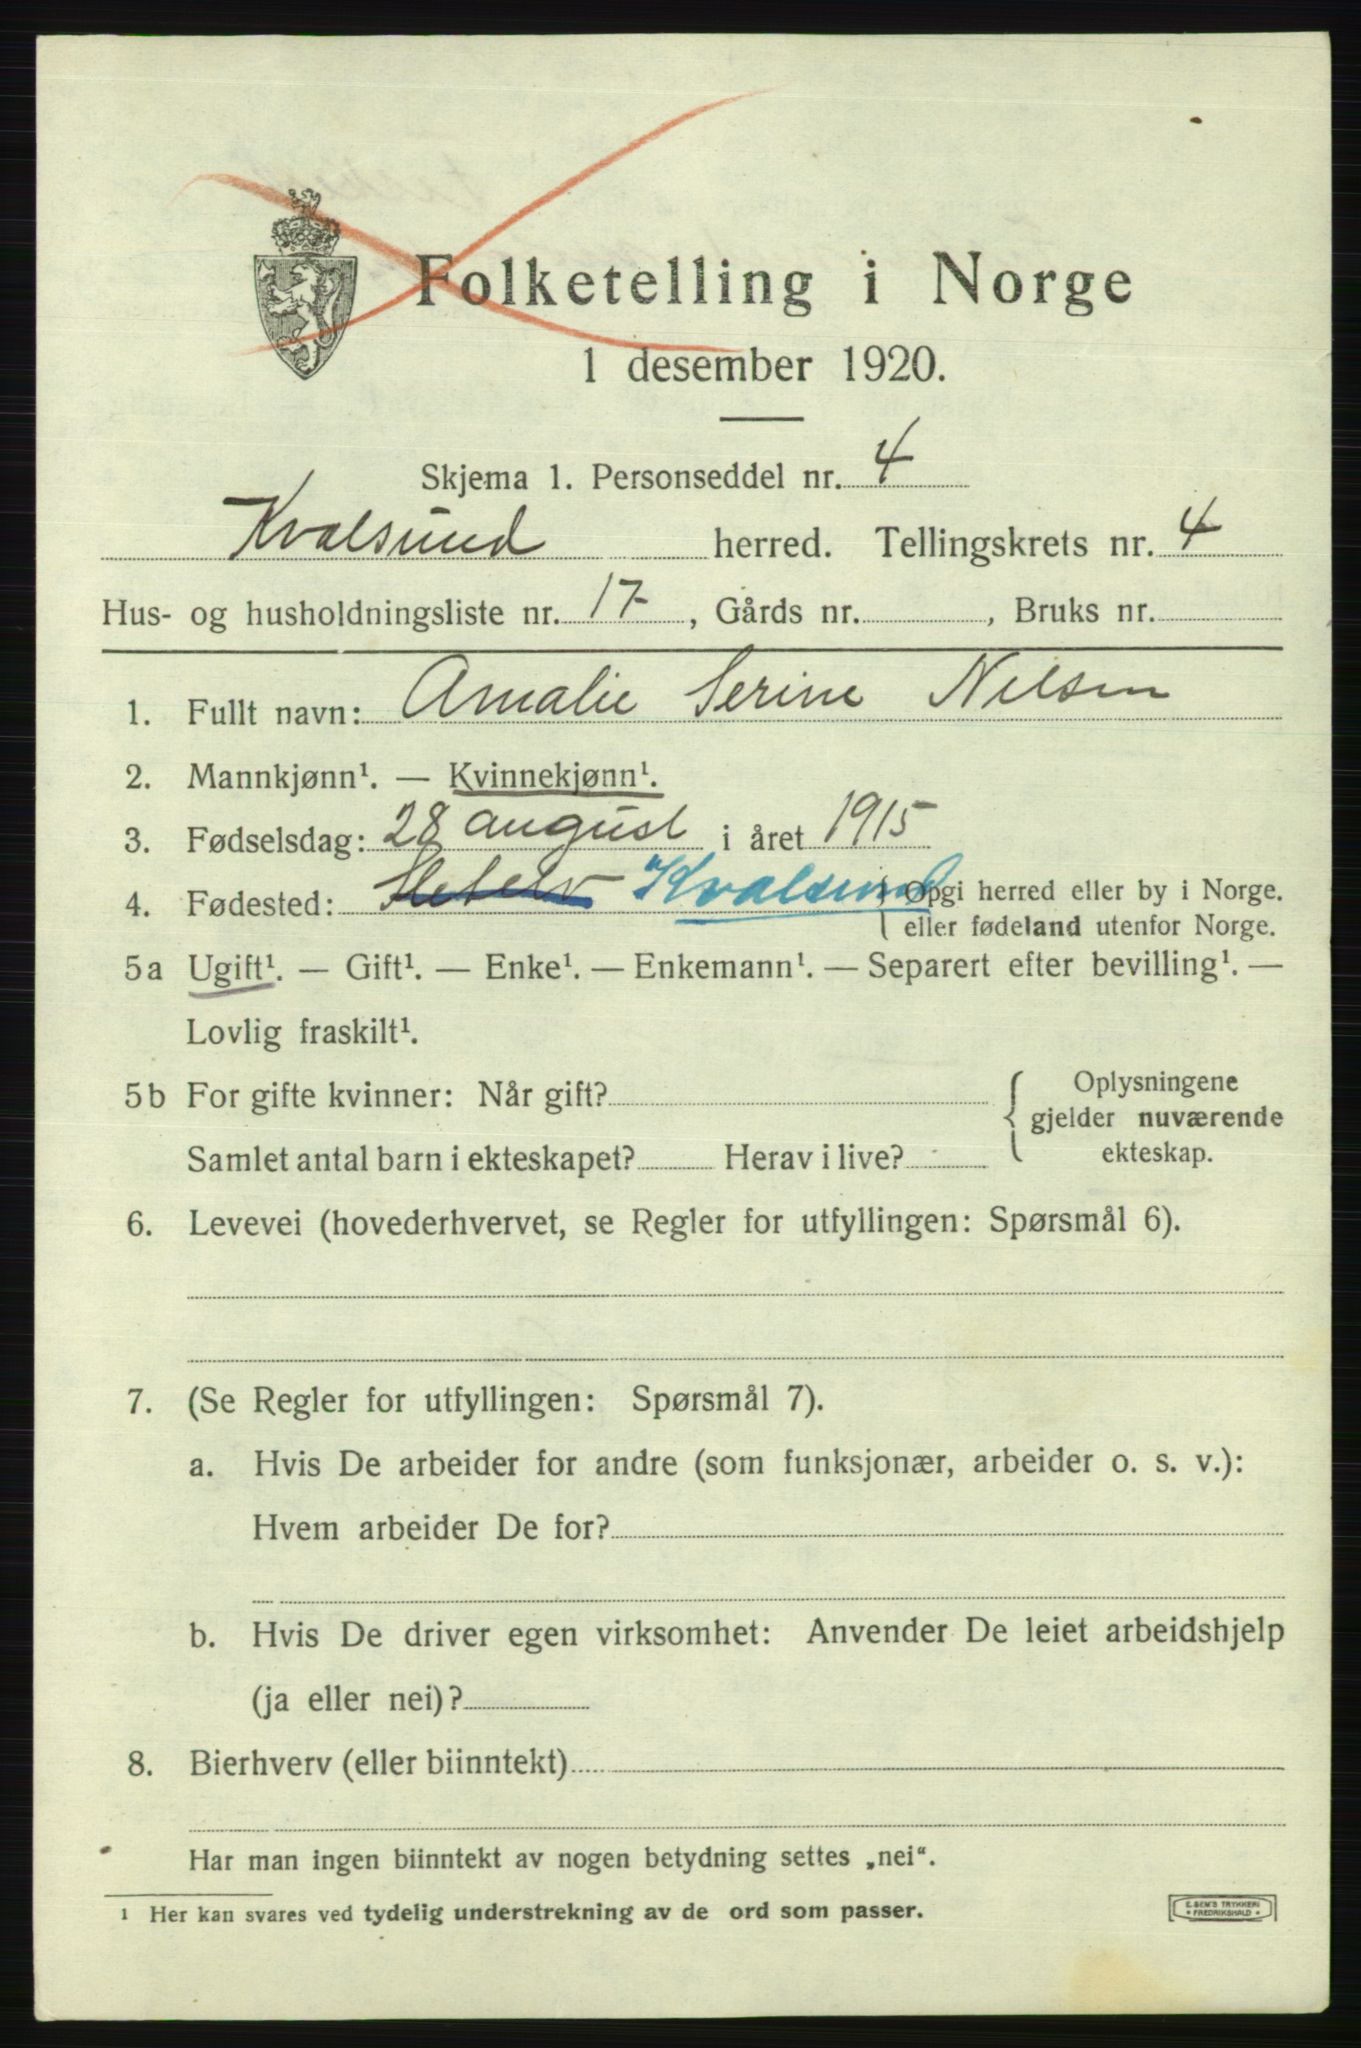 Folketelling i Norge
1 desember 1920.
Skjema 1. Personseddel nr. 4
Kvalsund herred. Tellingskrets nr. 4
Hus- og husholdningsliste nr. 17, Gårds nr. , Bruks nr.
1. Fullt navn: Amalie Serine Nilsen
2. Mannkjønn¹. — Kvinnekjønn¹.
3. Fødselsdag: 28 august i året 1915
4. Fødested: Kvalsund Opgi herred eller by i Norge.
eller fødeland utenfor Norge.
5a Ugift¹. — Gift¹. — Enke¹. — Enkemann¹. — Separert efter bevilling¹. —
Lovlig fraskilt¹.
5b For gifte kvinner: Når gift? Oplysningene
gjelder nuværende
Samlet antal barn i ekteskapet? Herav i live? ekteskap.
6. Levevei (hovederhvervet, se Regler for utfyllingen: Spørsmål 6).
7. (Se Regler for utfyllingen: Spørsmål 7).
a. Hvis De arbeider for andre (som funksjonær, arbeider o. s. v.):
Hvem arbeider De for?
b. Hvis De driver egen virksomhet: Anvender De leiet arbeidshjelp
(ja eller nei)?
8. Bierhverv (eller biinntekt)
Har man ingen biinntekt av nogen betydning settes „nei“.
¹ Her kan svares ved tydelig understrekning av de ord som passer.
E. SEM'S TRYKKERI
FREDRIKSHALD